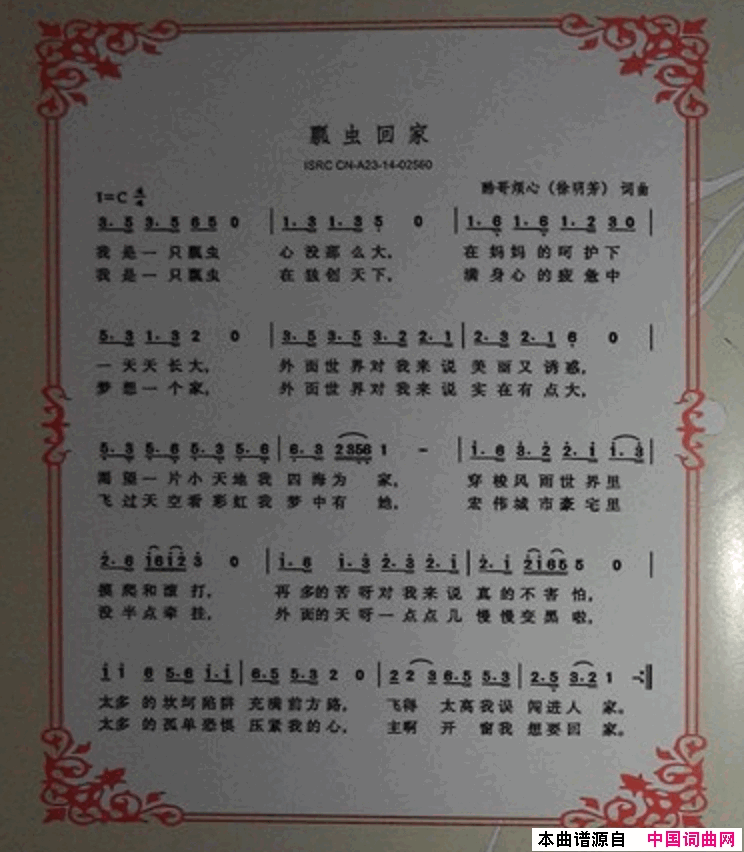 瓢虫回家
ISRC CN-A23-14-02560
1=C 4/4
酷哥烦心（徐明芳） 词曲
3. 5 3. 5 6 5 0 | 1. 3 1. 3 5 0 | 1. 6 1. 6 1. 2 3 0 |
我是一只瓢虫 心没那么大， 在妈妈的呵护下
我是一只瓢虫 在独创天下， 满身心的疲惫中
5. 3 1. 3 2 0 | 3. 5 3. 5 3. 2 2. 1 | 2. 3 2. 1 6 0 |
一天天长大， 外面世界对我来说 美丽又诱惑，
梦想一个家， 外面世界对我来说 实在有点大，
5. 3 5. 6 5. 3 5. 6 | 6. 3 2356 1 - | 1. 6 3. 2 2. 1 1. 3 |
渴望一片小天地我 四海为家， 穿梭风雨世界里
飞过天空看彩虹我 梦中有她， 宏伟城市豪宅里
2. 6 1612 3 0 | 1. 6 1. 3 2. 3 2. 1 | 2. 1 2165 5 0 |
摸爬和滚打， 再多的苦呀对我来说 真的不害怕，
没半点牵挂， 外面的天呀一点点儿 慢慢变黑啦，
1 1 6 5. 6 1. 1 | 6. 5 5. 3 2 0 | 2 2 3 6. 5 5. 3 | 2. 5 3. 2 1 - :||
太多的坎坷陷阱 充满前方路， 飞得太高我误 闯进人家。
太多的孤单恐惧 压紧我的心， 主啊开窗我 想要回家。
本曲谱源自 中国词曲网